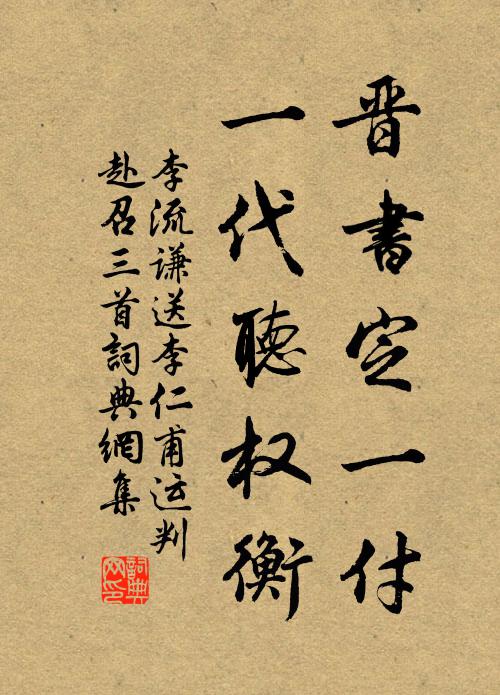 晋書定一付
一代聽权衡
李流谦送李仁甫运判
赴召三首詞典網集
詞典网印